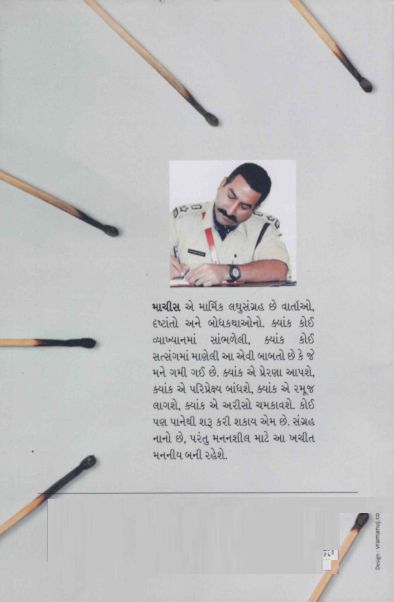 માચીસ એ માર્મિક લઘુસંગ્રહ છે વાર્તાઓ,
દષ્ટાંતો અને બોધકથાઓનો. ક્યાંક કોઈ
વ્યાખ્યાનમાં સાંભળેલી, ક્યાંક કોઈ
સત્સંગમાં માણેલી આ એવી બાબતો છે કે જે
મને ગમી ગઈ છે. ક્યાંક એ પ્રેરણા આપશે,
ક્યાંક એ પરિપ્રેક્ષ્ય બાંધશે, ક્યાંક એ રમૂજ
લાગશે, ક્યાંક એ અરીસો ચમકાવશે. કોઈ
પણ પાનેથી શરૂ કરી શકાય એમ છે. સંગ્રહ
નાનો છે, પરંતુ મનનશીલ માટે આ ખચીત
મનનીય બની રહેશે.
Design - viramanuj.co